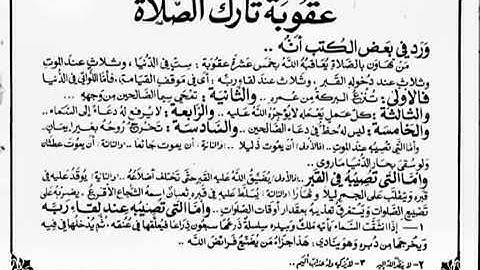 عقوبة تارك الصّلاة
ورد في بعض الكتب أنّه ..
من تهاون بالصلاة يعاقبه الله بخمس عشرة عقوبة : ست في الدنيا ، وثلاث عند الموت
وثلاث عند دخوله القبر ، وثلاث عند لقاء ربه ؛ أي في موقف القيامة ، فأما اللواتي في الدنيا
فالأولى : تنزع البركة من عمره .. والثانية : تمحى سيما الصالحين من وجهه ...
والثالثة : كل عمل يعمله لا يؤجره الله عليه .. والرابعة : لا يرفع له دعاء إلى السماء ..
والخامسة : ليس له حظ في دعاء الصالحين .. والسادسة : تخرج روحه بغير إيمان .
وأما التي تصيبه عند الموت .. فالأولى أن يموت ذليلا .. والثانية: أن يموت جائعا .. والثالثة: أن يموت عطشان
ولو سقي بحار الدنيا ما روي ..
وأما التي تصيبه في القبر .. فالأولى: يضيق الله عليه القبر حتى تختلف أضلاعه .. والثانية: يوقد عليه في
قبره ويتقلب على الجمر ليلا ونهارا والثالثة: يسلط عليه في قبره ثعبان اسمه الشجاع الأقرع ، يضربه على
تضييع الصلوات ويستغرق تعذيبه بمقدار أوقات الصلوات .. وأما التي تصيبه عند لقاء ربه
١ — إذا انشقت السماء يأتيه ملك وبيده سلسلة ذرعها سبعون ذراعا فيعلقها في عنقه ، ثم يدخلها في فيه
ويخرجها من دبره وهو ينادي : هذا جزاء من يضيع فرائض الله ..
٢- لا ينظر الله إليه ٣- لا يزكيه وله عذاب أليم ..